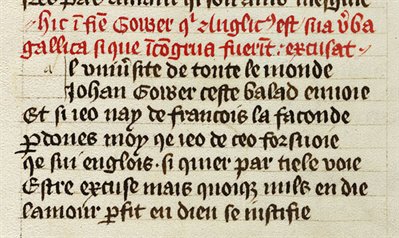 hic in fine Gower qr Anglicꝰ est sua vba
gallica si que incongrua fuerint excusat
al universite de toute le monde
Johan Gower ceste balad envoie
Et si ieo nay de francois la faconde
pdones moy qe ieo de ceo forsvoie
Je sui englois si quier par tiele voie
Estre excuse mais quoiqe nuls en die
lamour pfit en dieu se iustifie